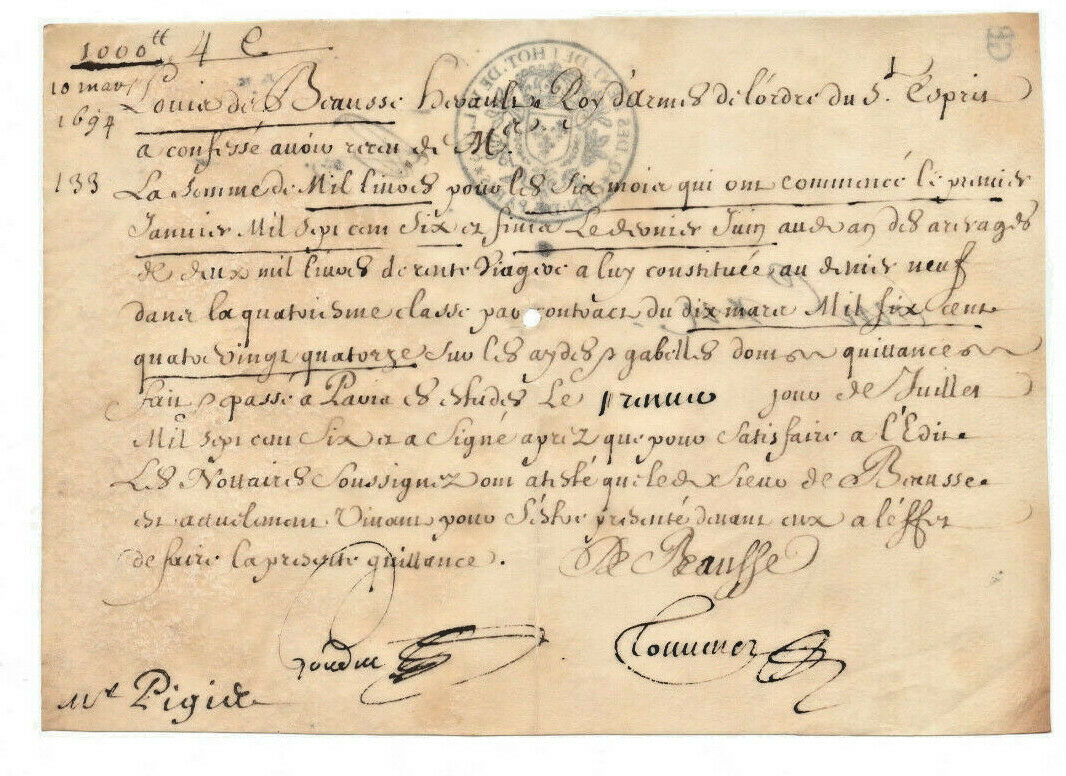 1000tt 4 C
10 mars
1694
Louis de Beausse herault Roy d'Armes de l'ordre du St. Esprit
a confessé avoir receu de Mr.
133
La somme de Mil livres pour les six mois qui ont commencé le premier
Janvier Mil sept cent six et finis le dernier Juin audt an des arerages
de deux mil livres de rente viagere a luy constituée au denier neuf
dans la quatoriesme classe par contract du dix mars Mil six cent
quatrevingt quatorze sur les aydes et gabelles dont quittance
fait et passé à Paris es estudes Le premier jour de Juillet
Mil sept cent six et a signé aprez que pour satisfaire a l'Edit
Les Nottaires soussignez ont atesté que led. sieur de Beausse
est actuelement vivant pour s'estre présenté devant eux a l'effet
de faire la presente quittance. De Beausse
Mr Pigis